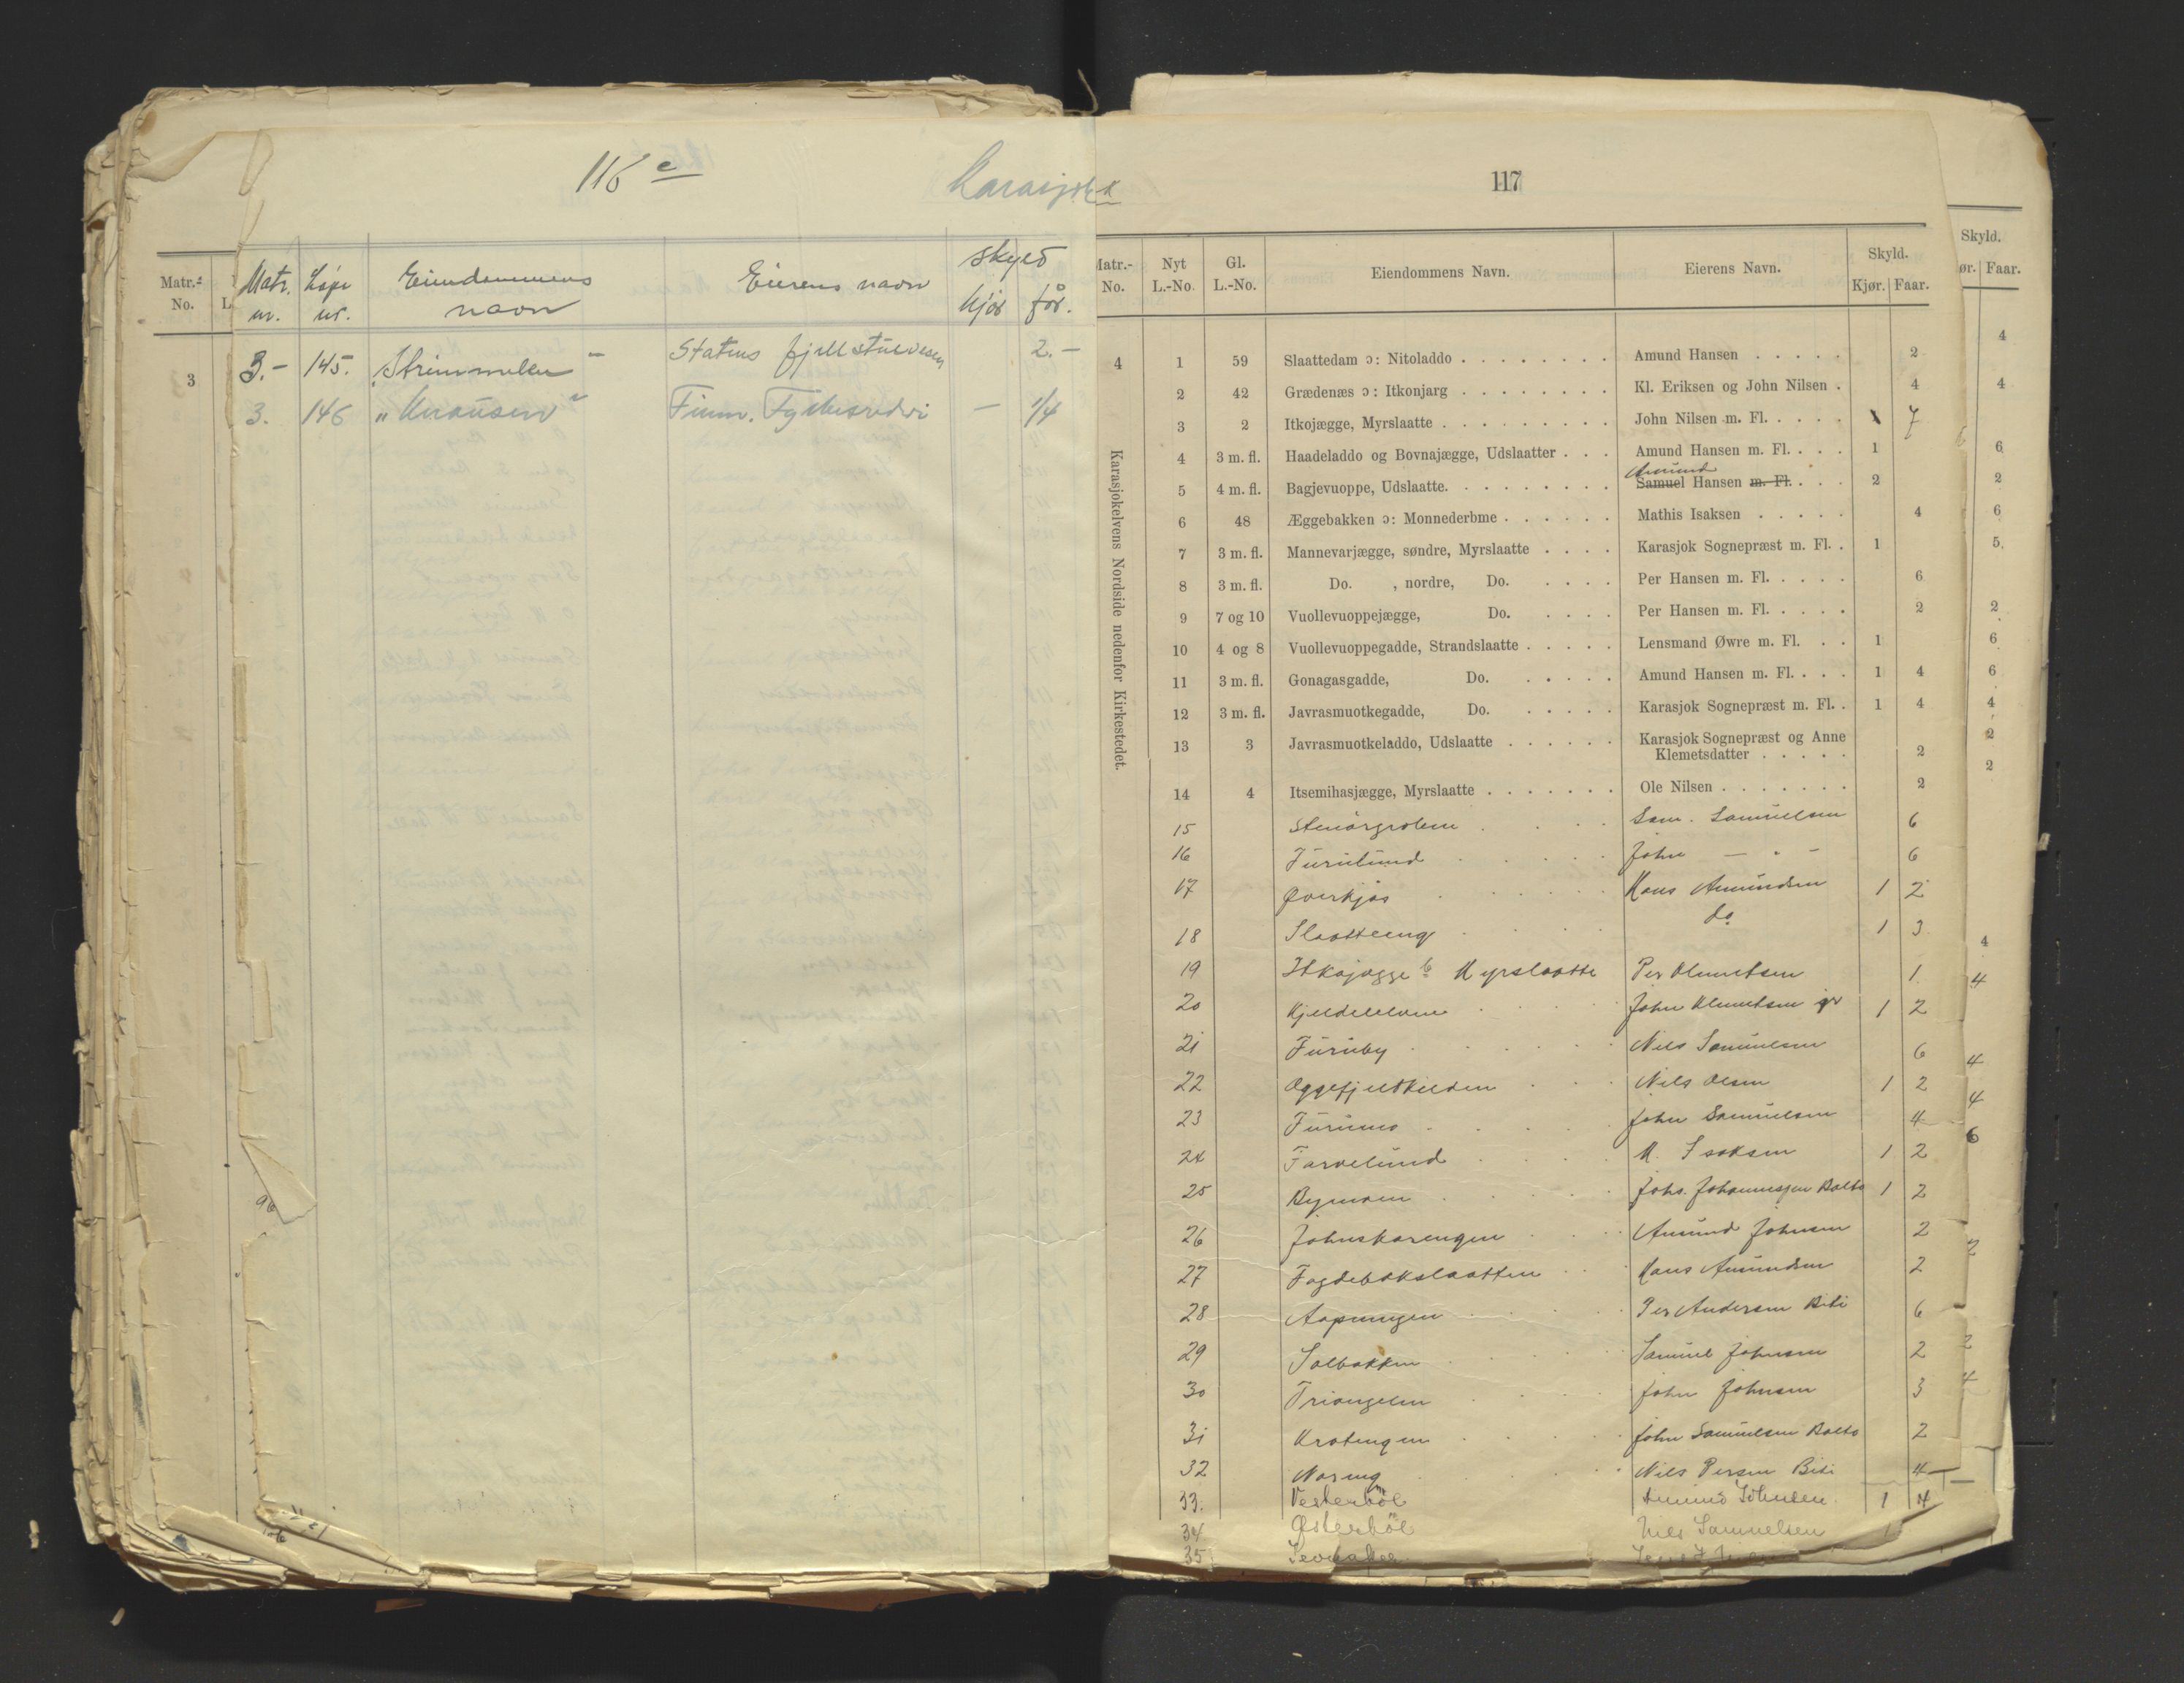 116 c
Karasjok
Matr.-
No.
L
Matr. nr.
Løpe nr.
Eiendommens navn
Eierens navn
Skyld
kjør
får.
3
3.- 145. "Strimmelen" Statens fjellstuevesen 2.-
3. 146 "Knausen" Finm. — 1/4
96
117
Matr.-No. Nyt L.-No. Gl. L.-No. Eiendommens Navn. Eierens Navn. Skyld. Kjør. Faar.
Karasjokelvens Nordside nedenfor Kirkestedet.
4 1 59 Slaattedam ɔ: Nitoladdo . . . . . . . . Amund Hansen . . . . . 2
2 42 Grædenæs ɔ: Itkonjarg . . . . . . . . Kl. Eriksen og John Nilsen . 4
3 2 Itkojægge, Myrslaatte . . . . . . . . . John Nilsen m. Fl. . . . . 7
4 3 m. fl. Haadeladdo og Bovnajægge, Udslaatter . . . Amund Hansen m. Fl. . . . 1
Amund
5 4 m. fl. Bagjevuoppe, Udslaatte. . . . . . . . . Samuel Hansen m. Fl. . . . 2
6 48 Æggebakken ɔ: Monnederbme . . . . . . Mathis Isaksen . . . . . 4
7 3 m. fl. Mannevarjægge, søndre, Myrslaatte . . . . Karasjok Sognepræst m. Fl. . 1
8 3 m. fl. Do. , nordre, Do. . . . . Per Hansen m. Fl. . . . . 6
9 7 og 10 Vuollevuoppejægge, Do. . . . . Per Hansen m. Fl. . . . . 2
10 4 og 8 Vuollevuoppegadde, Strandslaatte . . . . . Lensmand Øwre m. Fl. . . 1
11 3 m. fl. Gonagasgadde, Do. . . . . . Amund Hansen m. Fl. . . . 1 4
12 3 m. fl. Javrasmuotkegadde, Do. . . . . . Karasjok Sognepræst m. Fl. . 1 4
13 3 Javrasmuotkeladdo, Udslaatte . . . . . . Karasjok Sognepræst og Anne
Klemetsdatter . . . . . 2
14 4 Itsemihasjægge, Myrslaatte . . . . . . . Ole Nilsen . . . . . . . 2
15 Sam. Samuelsen 6
16 Furulund John — " — 6
17 Øverkjøs Hans Amundsen 1 2
18 Slaatteeng do 1 3
19 Itkojægge b Myrslaatte Per Klemetsen 1
20 Kjeldeelven John Klemetsen jr 1 2
21 Furuby Nils Samuelsen 6
22 Æggefjeldkilden Nils Olsen 1 2
23 Furumo John Samuelsen 4
24 Farvelund M. Isaksen 1 2
25 Bymoen Johs. Johannessen Balto 1 2
26 Johnskarengen Amund Johnsen 2
27 Fogdebakslaatten Hans Amundsen 2
28 Aapningen Per Andersen Biti 6
29 Solbakken Samuel Johnsen 2
30 Triangelen John Johnsen 3
31 Krotengen John Samuelsen Balto 2
32 Noreng Nils Persen Biti 4
33. Vesterbøl Amund Johnsen 1 4
34 Østerbøl Nils Samuelsen 1
35
Skyld.
ør. Faar.
4
4
6
2
6
5
2
6
6
4
2
2
4
4
4
4
6
2
2
4